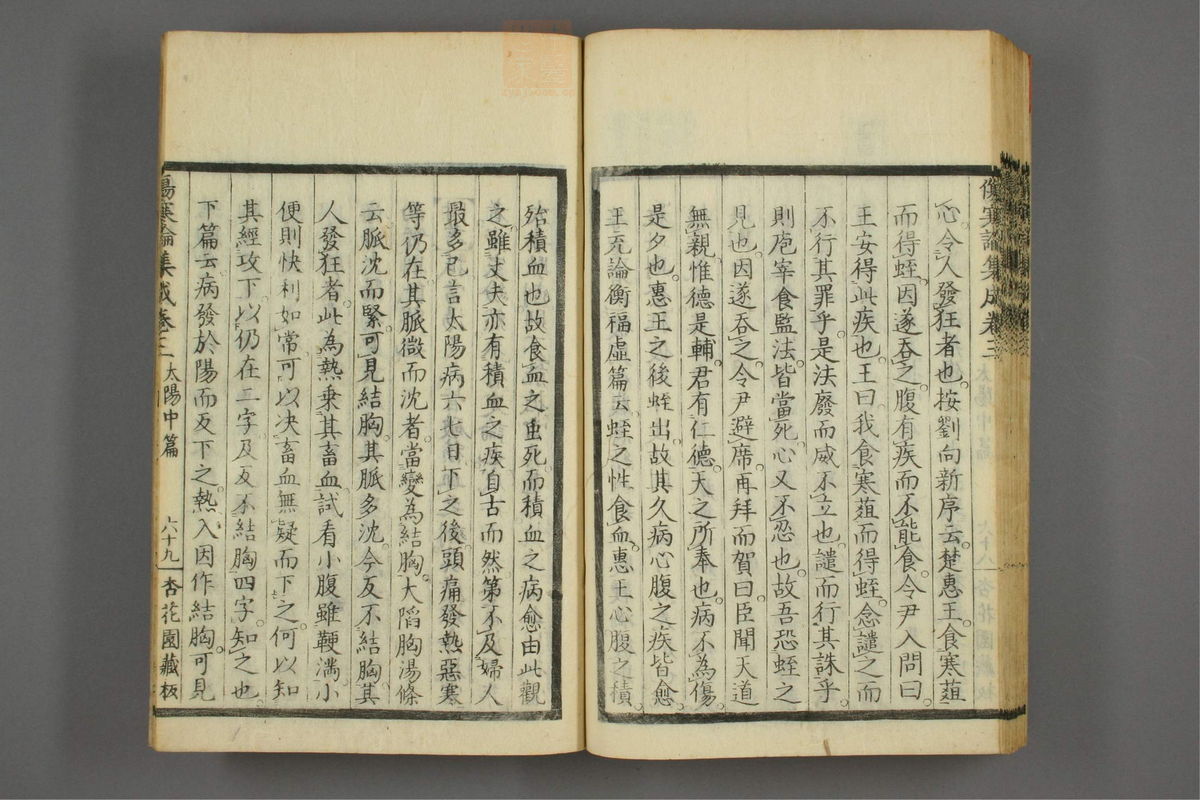 傷寒論集成卷三 太陽中篇 六十八 杏花園藏板
心令人發狂者也按劉向新序云楚惠王食寒葅
而得蛭因遂吞之腹有疾而不能食令尹入問曰
王安得此疾也王曰我食寒葅而得蛭念譴之而
不行其罪乎是法廢而威不立也譴而行其誅乎
則庖宰食監法皆當死心又不忍也故吾恐蛭之
見也因遂吞之令尹避席再拜而賀曰臣聞天道
無親惟德是輔君有仁德天之所奉也病不為傷
是夕也惠王之後蛭出故其久病心腹之疾皆愈
王充論衡福虛篇云蛭之性食血惠王心腹之積
殆積血也故食血之虫死而積血之病愈由此觀
之雖丈夫亦有積血之疾自古而然第不及婦人
最多已言太陽病六七日下之後頭痛發熱惡寒
等仍在其脈微而沈者當變為結胸大陷胸湯條
云脈沈而緊可見結胸其脈多沈今反不結胸其
人發狂者此為熱乗其畜血試看小腹雖鞕満小
便則快利如常可以决畜血無疑而下之何以知
其經攻下以仍在二字及反不結胸四字知之也
下篇云病發於陽而反下之熱入因作結胸可見
傷寒論集成卷三 太陽中篇 六十九 杏花園藏板